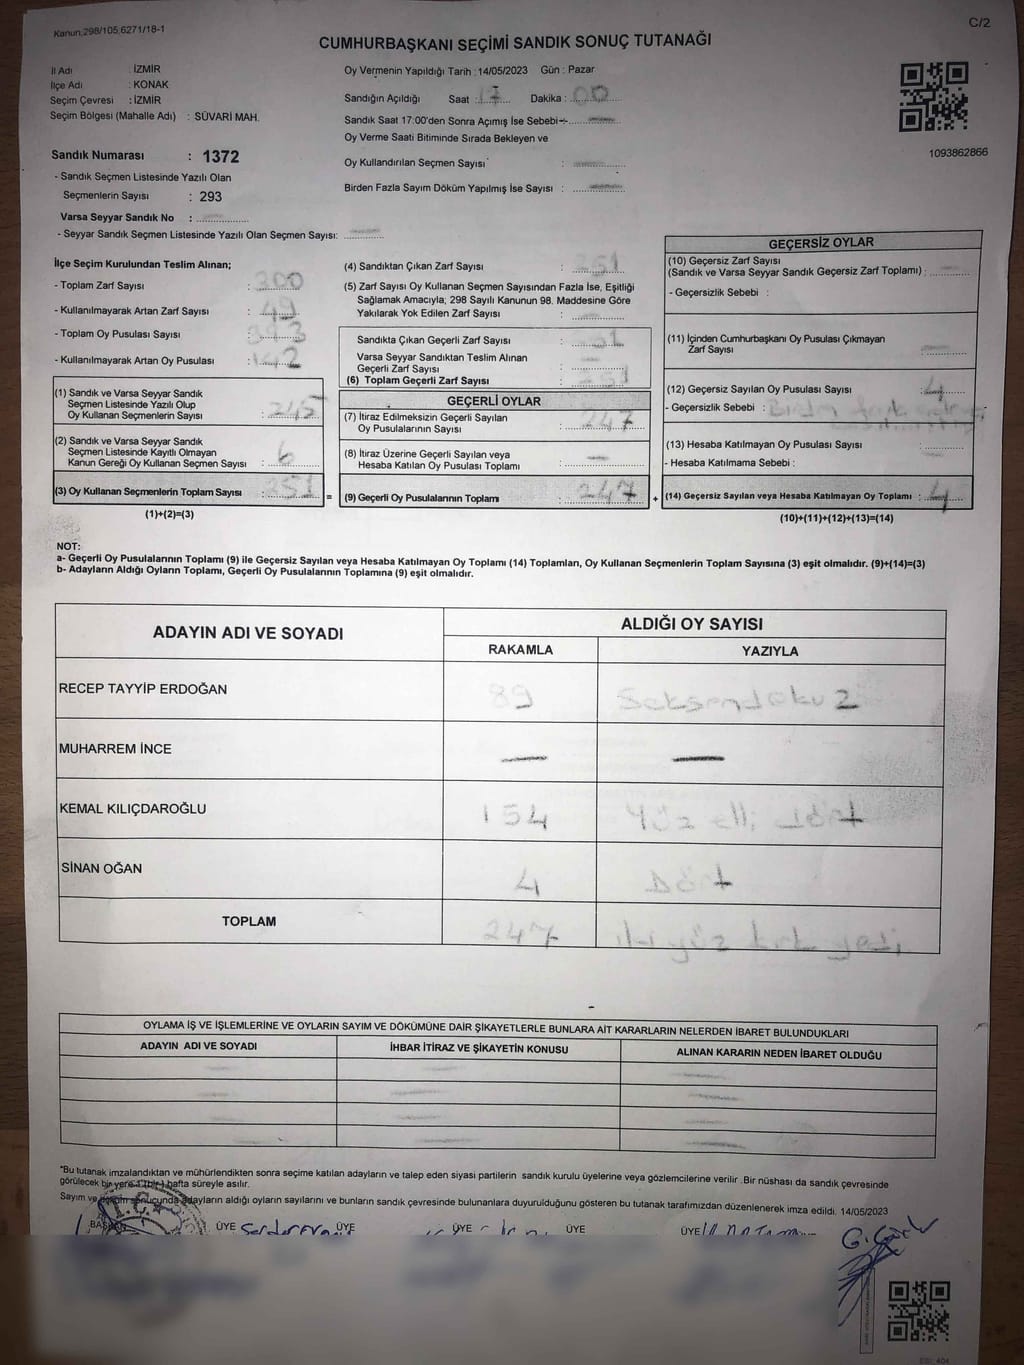 Kanun,298/105;6271/18-1
C/2
CUMHURBAŞKANI SEÇİMİ SANDIK SONUÇ TUTANAĞI
İl Adı : İZMİR
İlçe Adı : KONAK
Seçim Çevresi : İZMİR
Seçim Bölgesi (Mahalle Adı) : SÜVARİ MAH.
Oy Vermenin Yapıldığı Tarih : 14/05/2023 Gün : Pazar
Sandığın Açıldığı Saat : 17 Dakika : 00
Sandık Saat 17:00'den Sonra Açımış İse Sebebi :
Oy Verme Saati Bitiminde Sırada Bekleyen ve
Oy Kullandırılan Seçmen Sayısı :
Birden Fazla Sayım Döküm Yapılmış İse Sayısı :
1093862866
Sandık Numarası : 1372
- Sandık Seçmen Listesinde Yazılı Olan
Seçmenlerin Sayısı : 293
Varsa Seyyar Sandık No :
- Seyyar Sandık Seçmen Listesinde Yazılı Olan Seçmen Sayısı:
İlçe Seçim Kurulundan Teslim Alınan;
- Toplam Zarf Sayısı : 300
- Kullanılmayarak Artan Zarf Sayısı : 49
- Toplam Oy Pusulası Sayısı : 393
- Kullanılmayarak Artan Oy Pusulası : 142
(1) Sandık ve Varsa Seyyar Sandık
Seçmen Listesinde Yazılı Olup
Oy Kullanan Seçmenlerin Sayısı : 245
(2) Sandık ve Varsa Seyyar Sandık
Seçmen Listesinde Kayıtlı Olmayan
Kanun Gereği Oy Kullanan Seçmen Sayısı : 6
(3) Oy Kullanan Seçmenlerin Toplam Sayısı : 251
(1)+(2)=(3)
(4) Sandıktan Çıkan Zarf Sayısı : 251
(5) Zarf Sayısı Oy Kullanan Seçmen Sayısından Fazla İse, Eşitliği
Sağlamak Amacıyla; 298 Sayılı Kanunun 98. Maddesine Göre
Yakılarak Yok Edilen Zarf Sayısı :
Sandıkta Çıkan Geçerli Zarf Sayısı : 251
Varsa Seyyar Sandıktan Teslim Alınan
Geçerli Zarf Sayısı :
(6) Toplam Geçerli Zarf Sayısı : 251
GEÇERLİ OYLAR
(7) İtiraz Edilmeksizin Geçerli Sayılan
Oy Pusulalarının Sayısı : 247
(8) İtiraz Üzerine Geçerli Sayılan veya
Hesaba Katılan Oy Pusulası Toplamı :
= (9) Geçerli Oy Pusulalarının Toplamı : 247 +
GEÇERSİZ OYLAR
(10) Geçersiz Zarf Sayısı
(Sandık ve Varsa Seyyar Sandık Geçersiz Zarf Toplamı) :
- Geçersizlik Sebebi :
(11) İçinden Cumhurbaşkanı Oy Pusulası Çıkmayan
Zarf Sayısı :
(12) Geçersiz Sayılan Oy Pusulası Sayısı : 4
- Geçersizlik Sebebi :
(13) Hesaba Katılmayan Oy Pusulası Sayısı :
- Hesaba Katılmama Sebebi :
(14) Geçersiz Sayılan veya Hesaba Katılmayan Oy Toplamı : 4
(10)+(11)+(12)+(13)=(14)
NOT:
a- Geçerli Oy Pusulalarının Toplamı (9) ile Geçersiz Sayılan veya Hesaba Katılmayan Oy Toplamı (14) Toplamları, Oy Kullanan Seçmenlerin Toplam Sayısına (3) eşit olmalıdır. (9)+(14)=(3)
b- Adayların Aldığı Oyların Toplamı, Geçerli Oy Pusulalarının Toplamına (9) eşit olmalıdır.
ADAYIN ADI VE SOYADI
ALDIĞI OY SAYISI
RAKAMLA YAZIYLA
RECEP TAYYİP ERDOĞAN 89 Seksendokuz
MUHARREM İNCE — —
KEMAL KILIÇDAROĞLU 154 Yüz elli dört
SİNAN OĞAN 4 Dört
TOPLAM 247 iki yüz kırk yedi
OYLAMA İŞ VE İŞLEMLERİNE VE OYLARIN SAYIM VE DÖKÜMÜNE DAİR ŞİKAYETLERLE BUNLARA AİT KARARLARIN NELERDEN İBARET BULUNDUKLARI
ADAYIN ADI VE SOYADI İHBAR İTİRAZ VE ŞİKAYETİN KONUSU ALINAN KARARIN NEDEN İBARET OLDUĞU
*Bu tutanak imzalandıktan ve mühürlendikten sonra seçime katılan adayların ve talep eden siyasi partilerin sandık kurulu üyelerine veya gözlemcilerine verilir .Bir nüshası da sandık çevresinde
görülecek bir yere 1 (bir) hafta süreyle asılır.
Sayım ve döküm sonucunda adayların aldığı oyların sayılarını ve bunların sandık çevresinde bulunanlara duyurulduğunu gösteren bu tutanak tarafımızdan düzenlenerek imza edildi. 14/05/2023
T.C.
BAŞKAN ÜYE ÜYE ÜYE ÜYE ÜYE